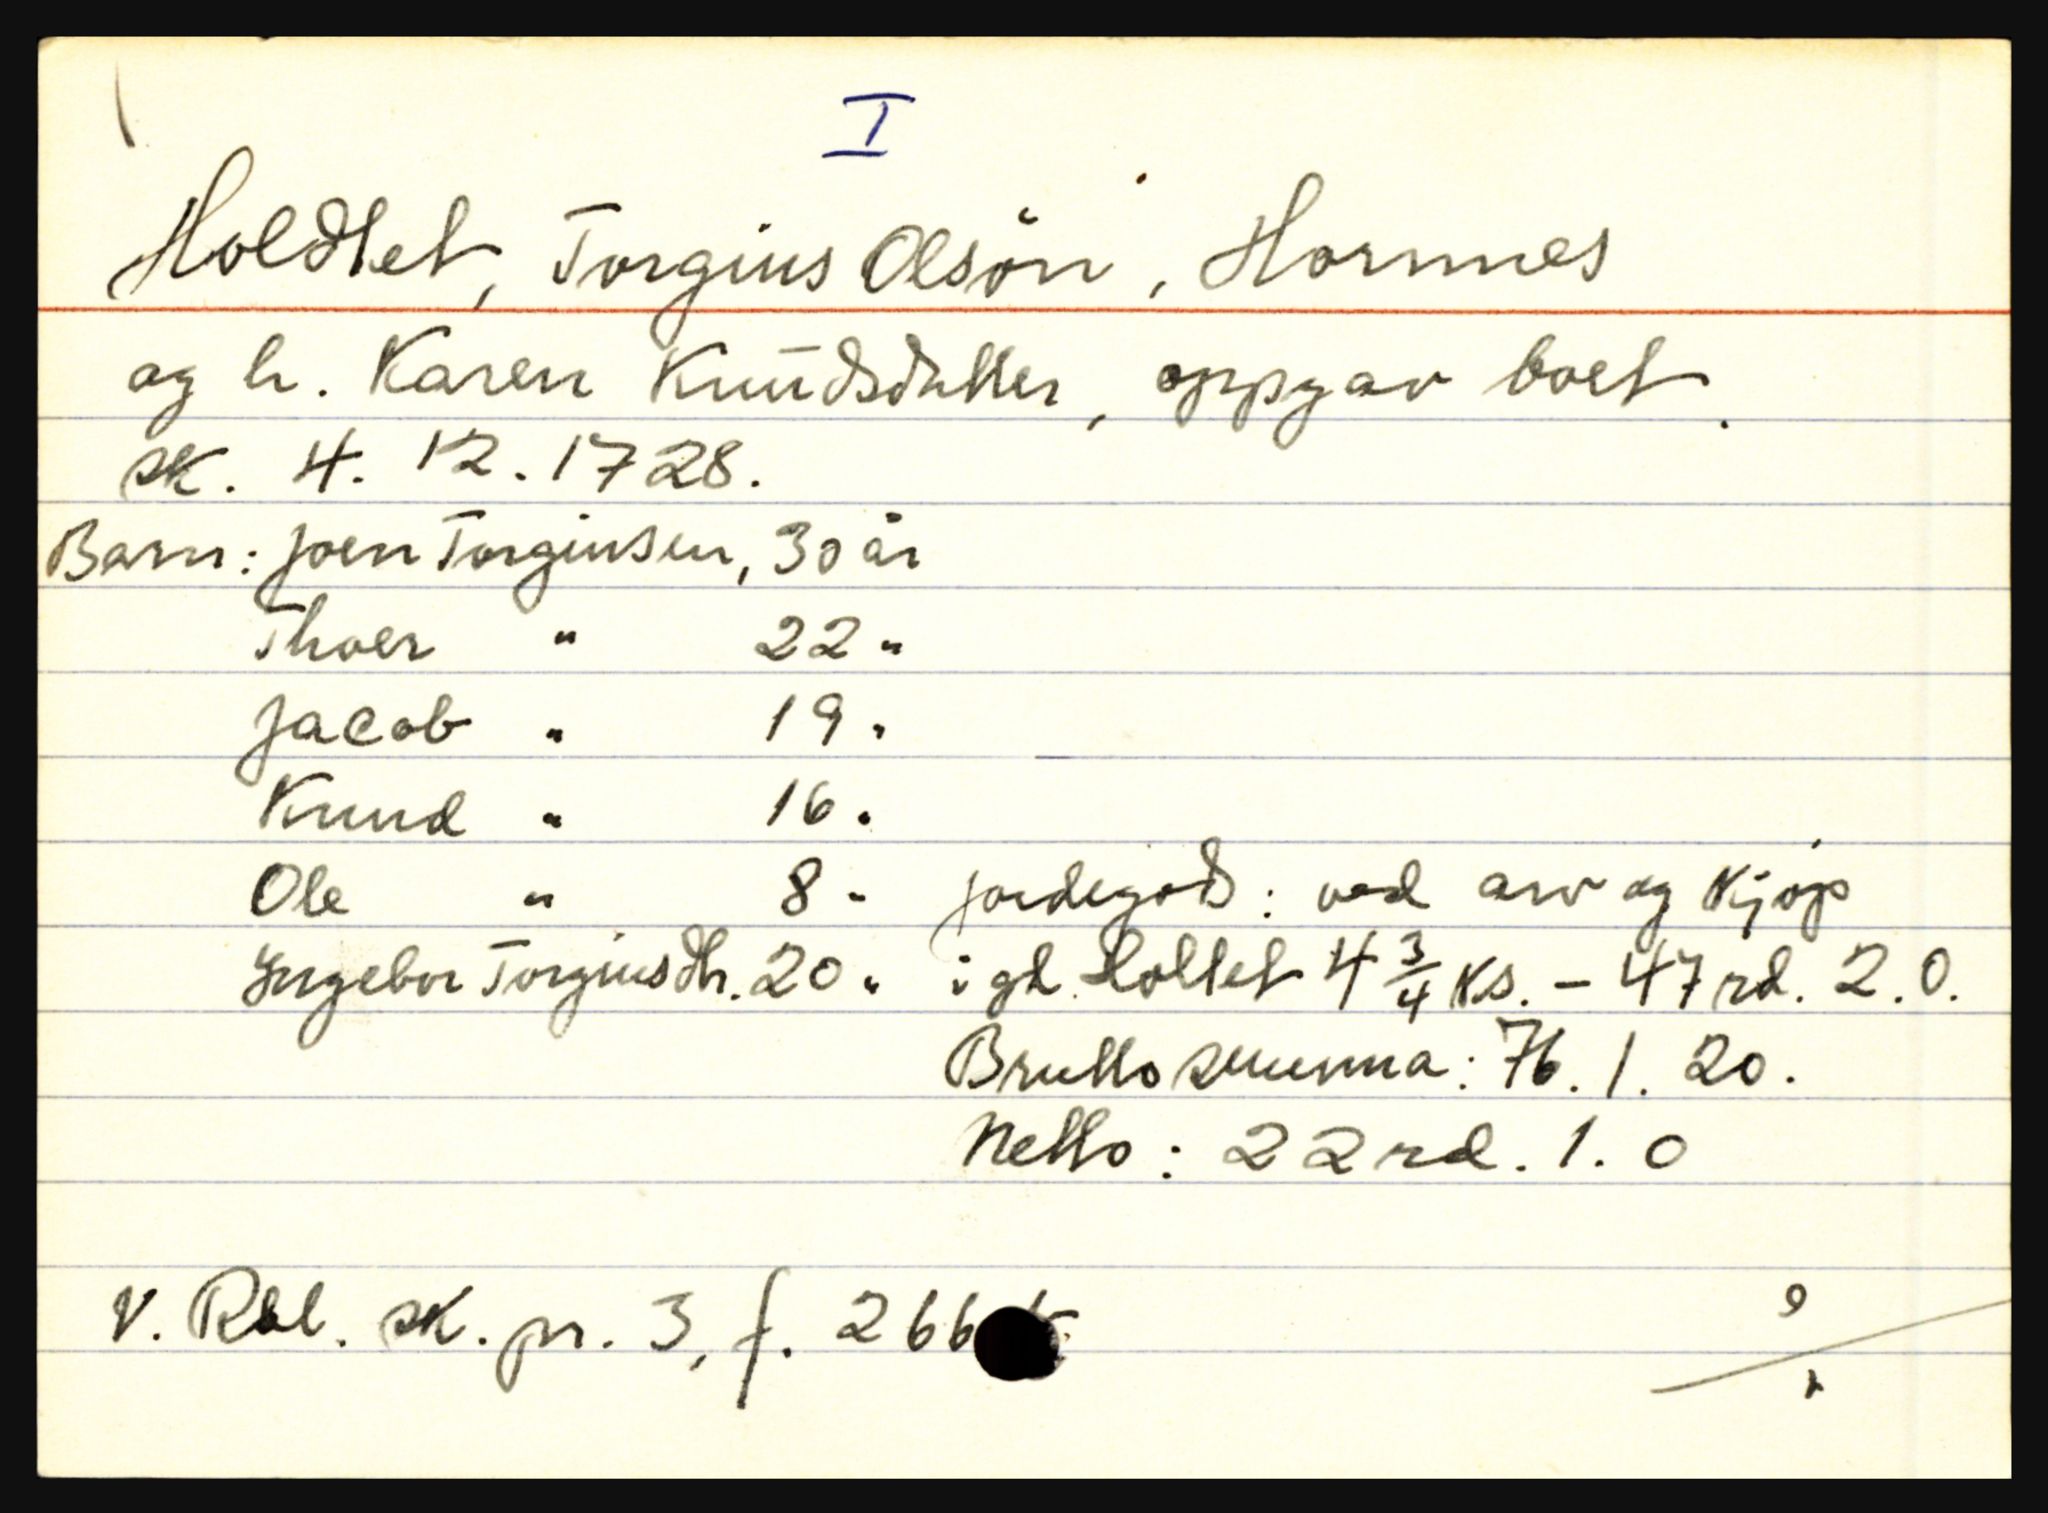 I
Holdtet, Torgius Olsön, Hornnes
og h. Karen Knudsdatter, oppgav boet.
sk. 4. 12. 1728.
Barn: Joen Torgiusen, 30 år
Thoer " 22 "
Jacob " 19 "
Knud " 16 "
Ole " 8 " jordegods: ved arv og kjøp
Ingebor Torgiusdtr. 20 " i gd. Holtet 4 3/4 ks. - 47 rd. 2. 0.
Brutto summa: 76. 1. 20.
Netto: 22 rd. 1. 0
V. Rbl. sk. pr. 3, f. 266